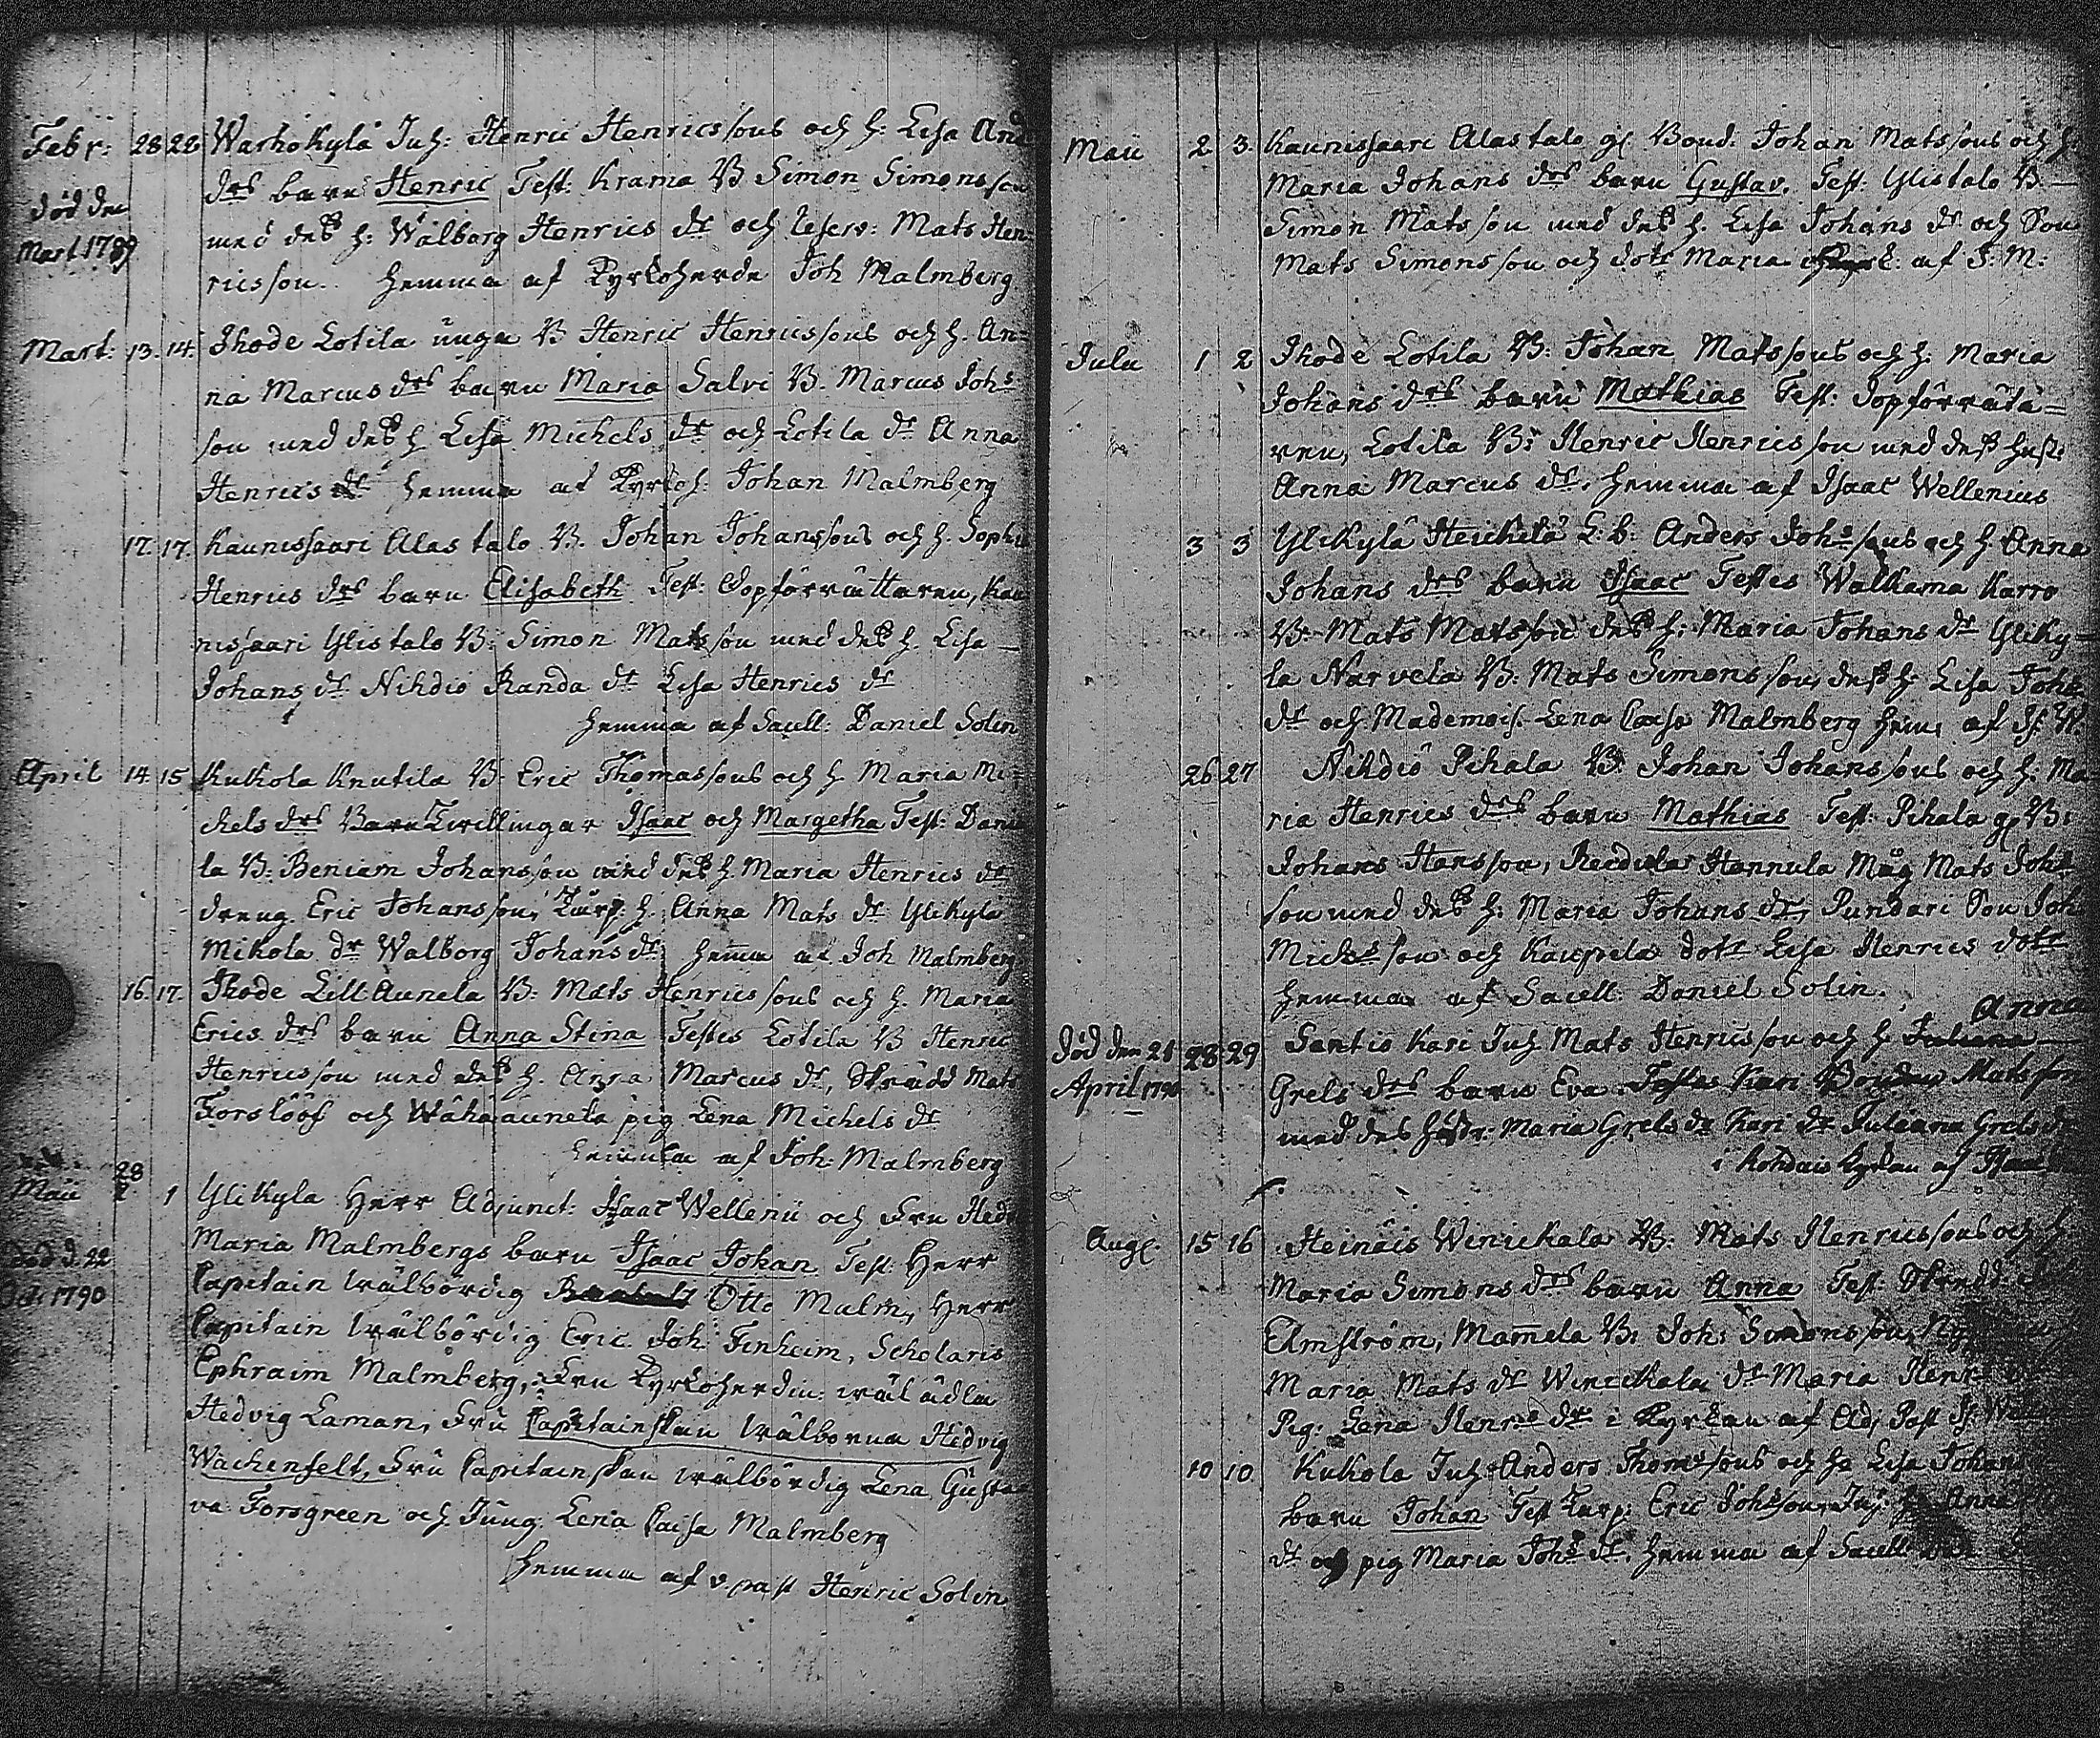 Febr: 28 28 Warhokylä Inh: Henric Henricssons och h: Lisa And
drs barn Henric Test: Krama B Simon Simonsson
död den
med dess h: Walborg Henrics dr och reserv: Mats Hen
Mart 1789
ricsson. hemma af Kyrkoherde Joh Malmberg
Mart: 13. 14. Ihode Lotila unga B Henric Henricssons och h. An=
na Marcus drs barn Maria Salvi B. Marcus Johs
son med dess h Lisa Michels dr och Lotila dr Anna
Henrics dr hemma af Kyrkoh: Johan Malmberg
17. 17. Kaunissaari Alastalo B. Johan Johanssons och h. Sophia
Henrics drs barn Elisabeth Test: Dopförrättaren, Kau
nissaari Ylistalo B: Simon Matsson med dess h. Lisa
Johans dr Nihdiö Randa dr Lisa Henrics dr
hemma af Sacell: Daniel Solin
April 14 15 Kukola Knutila B. Eric Thomassons och h Maria Mi=
chels drs Barn Twillingar Isaac och Margetha Test: Dani
la B. Beniam Johansson med dess h. Maria Henrics dr
dreng Eric Johansson, h. Anna Mats dr Ylikylä
Mikola dr Walborg Johans dr hemma af Joh Malmberg
16. 17. Ihode Lill Aunela B: Mats Henricssons och h. Maria
Erics drs barn Anna Stina Testes Lotila B Henric
Henricsson med dess h. Anna Marcus dr, Skrädd Mats
Forslööf och Wähäaunela pig Lena Michels dr
hemma af Joh. Malmberg
28
Maii 1 Ylikyla Herr Adjunct: Isaac Wellenii och Fru Hedv
Maria Malmbergs barn Isaac Johan Test: Herr
död d. 22
Capitain wälbördig Otto Malm, Herr
1790
Capitain wälbördig Eric Joh Finheim, Scholaris
Ephraim Malmberg, Fru Kyrkoherdin: wäl ädla
Hedvig Laman, Fru Capitainskan wälborna Hedvig
Wachenfelt, Fru Capitainskan wälbördig Lena Gusta
va Forsgreen och Jung: Lena Caisa Malmberg
hemma af v. past Henric Solin
Maii 2 3. Kaunissaari Alastalo gl Bond: Johan Matssons och h:
Maria Johans drs barn Gustav. Test: Ylistalo B.
Simon Matsson med dess h. Lisa Johans dr och Son
Mats Simonsson och dotr Maria af I: M:
Julii 1 2 Ihode Lotila B: Johan Matssons och h. Maria
Johans drs barn Mathias Test: Dopförrätta=
ren, Lotila B: Henric Henricsson med dess hust:
Anna Marcus dr. hemma af Isaac Wellenius
3 3 Ylikylä Heickilä L: b: Anders Johssons och h Anna
Johans drs barn Isaac Testes Walkama Karro
B. Mats Matsson dess h: Maria Johans dr Yliky=
la Narvela B: Mats Simonsson, dess h: Lisa Johs
dr och Mademois. Lena Caisa Malmberg hem: af Is: W.
26 27 Nihdiö Pihala B. Johan Johanssons och h. Ma
ria Henrics drs barn Mathias Test: Pihala gl B:
Johans Hansson, Hannula Måg Mats Johs
son med dess h: Maria Johans dr, Pundari Son Joh
Michsson och Kauppila dotr Lisa Henrics dotr
hemma af Sacell: Daniel Solin.
Anna
död den 21 28 29 Santio Kari Inh Mats Henricsson och h Juliana
April 1790 Grels drs barn Eva Testes Kari Bonden Matsson
med des Maria Grels dr Kari dr Juliana Grelsdr
i Kyrkan af Isaac
Aug. 15 16 Heinäis Winickala B: Mats Henricssons och h.
Maria Simons drs barn Anna Test: Skrädd:
Elmström, Mamela B: Joh: Simonsson,
Maria Mats dr Winickala dr Maria Henr
Pig: Lena Henrs dr i Kyrkan af Adj Past Is: W
10 10 Kukola Inh Anders Thomssons och hs Lisa Johan
barn Johan Test Eric Johsson, Inh: Anna
dr och pig Maria Johs dr. hemma af Sacell